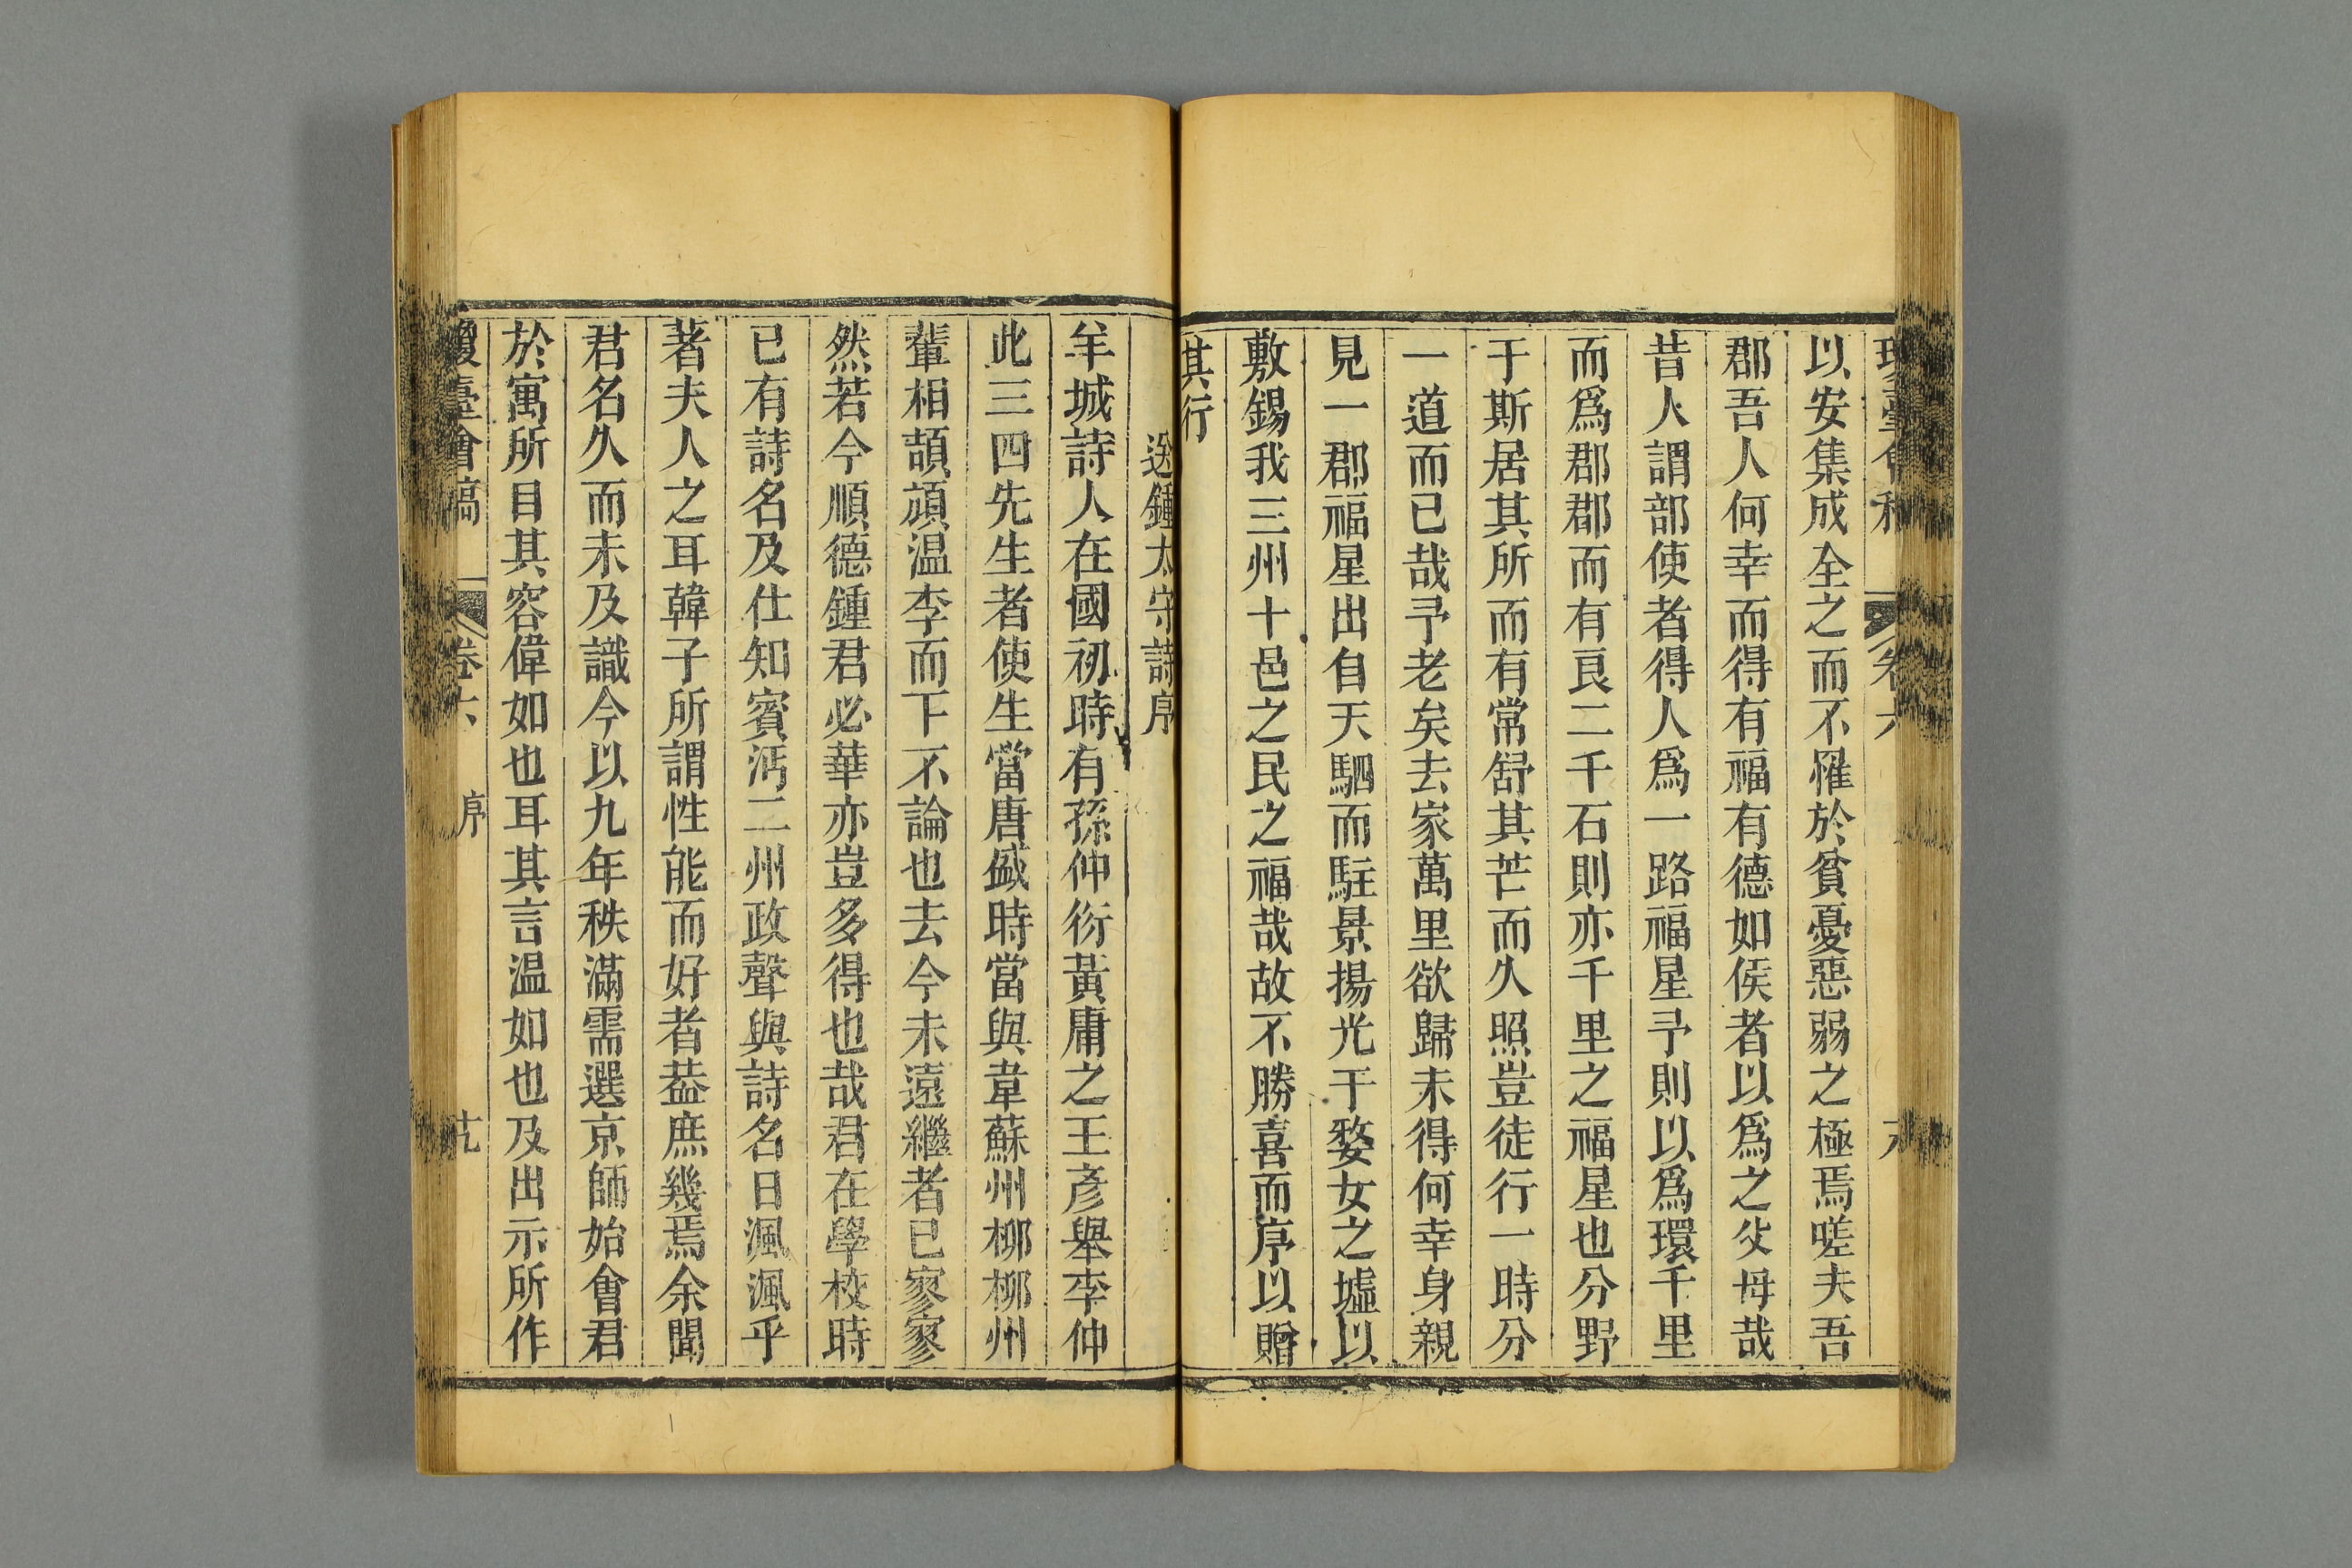 卷六
以安集成全之而不罹於貧憂惡弱之極焉嗟夫吾
郡吾人何幸而得有福有德如侯者以爲之父母哉
昔人謂部使者得人爲一路福星予則以爲環千里
而爲郡郡而有良二千石則亦千里之福星也分野
于斯居其所而有常舒其芒而久照豈徒行一時分
一道而已哉予老矣去家萬里欲歸未得何幸身親
見一郡福星出自天駟而駐景揚光于婺女之墟以
敷錫我三州十邑之民之福哉故不勝喜而序以贈
其行
送鍾太守詩序
羊城詩人在國初時有孫仲衍黃庸之王彥舉李仲
此三四先生者使生當唐盛時當與韋蘇州柳柳州
輩相頡頏温李而下不論也去今未遠繼者已寥寥
然若今順德鍾君必華亦豈多得也哉君在學校時
已有詩名及仕知賓沔二州政聲與詩名日渢渢乎
著夫人之耳韓子所謂性能而好者葢庶幾焉余聞
君名久而未及識今以九年秩滿需選京師始會君
於寓所目其容偉如也耳其言温如也及出示所作
瓊臺會稿 卷六 序